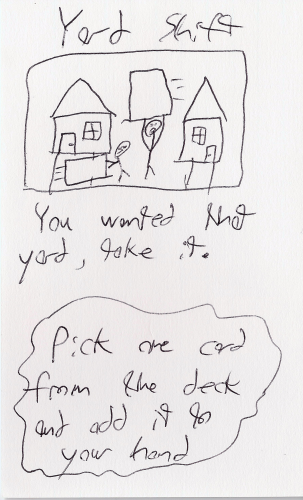 Yard Shift
You wanted that
yard, take it.
Pick one card
from the deck
and add it to
your hand